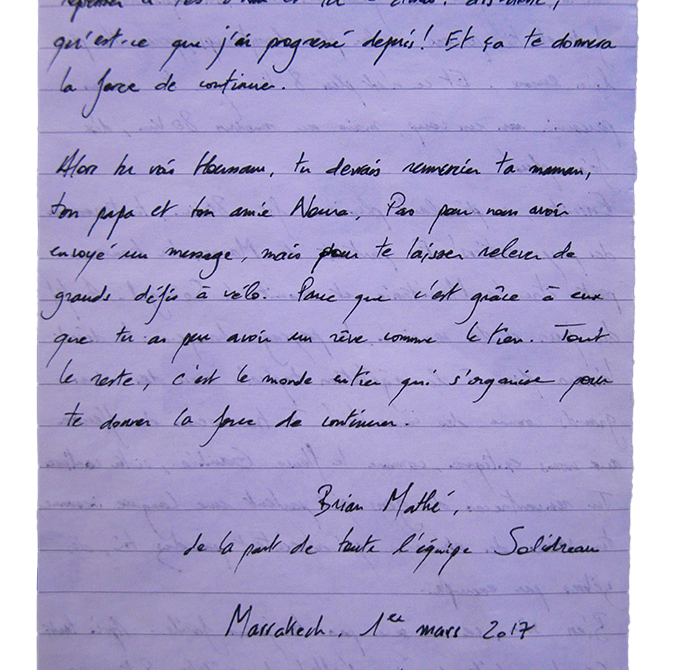 repenser à
qu'est-ce que j'ai progressé depuis! Et ça te donnera
la force de continuer.
Alors tu vois, tu devrais remercier ta maman,
ton papa et ton amie Noura, Pas pour nous avoir
envoyé un message, mais pour te laisser relever de
grands défis à vélo. Parce que c'est grâce à eux
que tu as peu avoir un rêve comme le tien. Tout
le reste, c'est le monde entier qui s'organise pour
te donner la force de continuer.
Brian Mathé,
de la part de toute l'équipe Solidream
Marrakech, 1er mars 2017